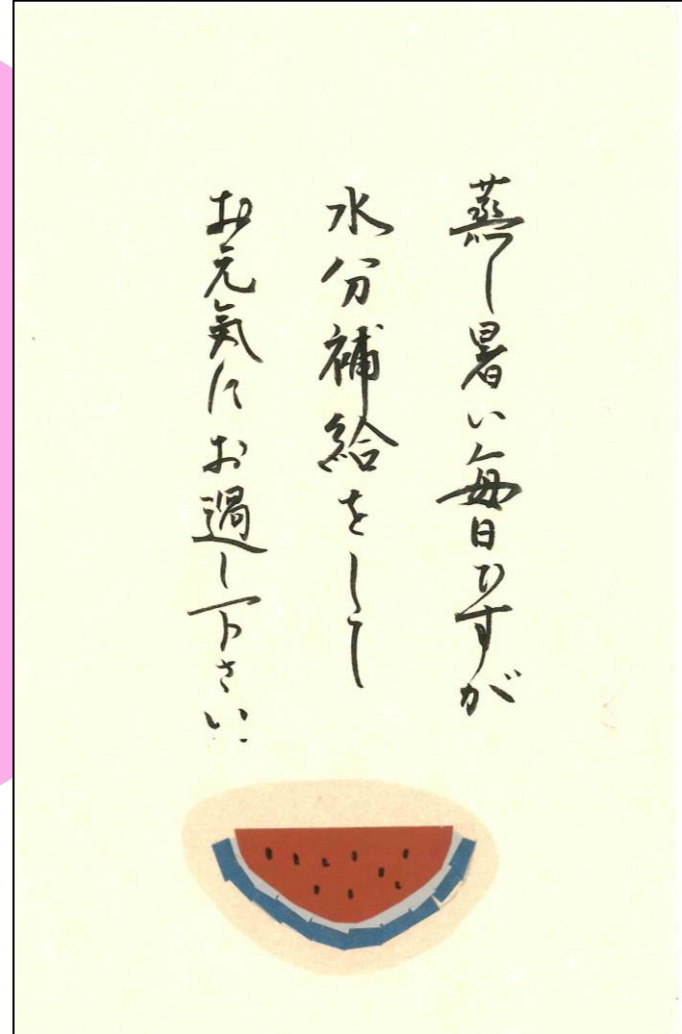 蒸し暑い毎日ですが
水分補給をして
お元氣にお過し下さい